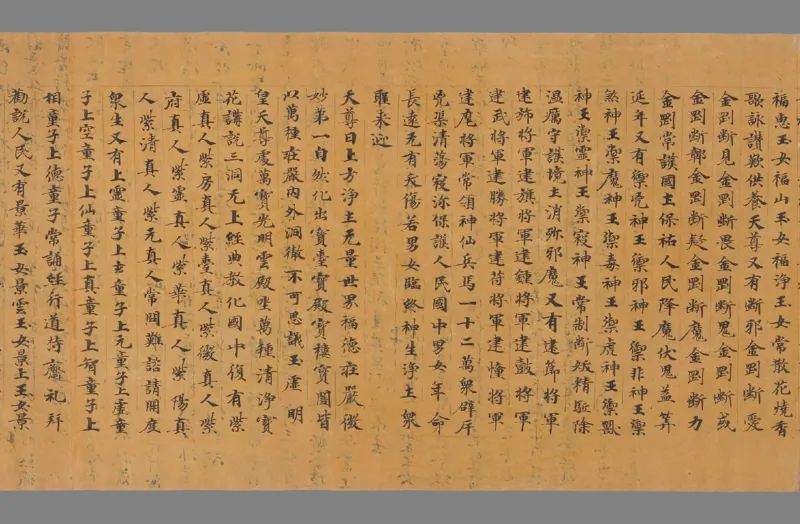 福惠玉女福山玉女福淨玉女常散花燒香
歌詠讃歎供養天尊又有斷邪金剛斷愛
金剛斷見金剛斷畏金剛斷鬼金剛斷或
金剛斷鄣金剛斷疑金剛斷魔金剛斷力
金剛常護國主保祐人民降魔伏鬼益筭
延年又有禦兇神王禦邪神王禦非神王禦
煞神王禦魔神王禦毒神王禦虎神王禦獸
神王禦靈神王禦寇神王常制斷妖精駈除
温厲守護境土消弥邪魔又有建節將軍
建斾將軍建旗將軍建鍾將軍建鼓將軍
建武將軍建勝將軍建苻將軍建幢將軍
建麾將軍常領神仙兵馬一十二萬衆辟斥
兇渠清蕩寇弥保護人民國中男女年命
長遠无有夭傷若男女臨終神生淨土衆
聖来迎
天尊曰上方淨土无量世界福德莊嚴微
妙第一自然化出寶臺寶殿寶樓寶閣皆
以萬種莊嚴内外洞徹不可思議玉虛明
皇天尊處萬寶光明雲殿坐萬種清淨寶
花講說三洞无上經典教化國中復有紫
虛真人紫房真人紫臺真人紫微真人紫
府真人紫靈真人紫華真人紫陽真
人紫清真人紫元真人常開難諮請開度
衆生又有上靈童子上玄童子上元童子上虛童
子上空童子上仙童子上真童子上智童子上
相童子上德童子常誦經行道侍齋礼拜
勸說人民又有景華玉女景雲玉女景上玉女景